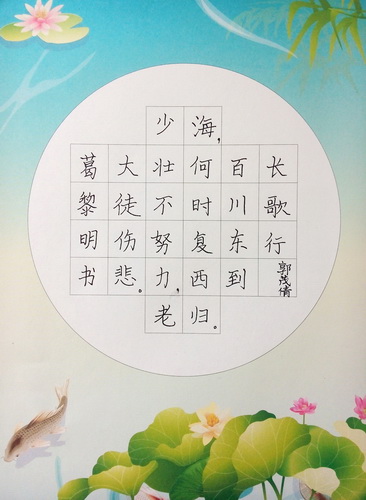 长歌行郭茂倩
百川东到
海,何时复西归。
少壮不努力,老
大徒伤悲。
葛黎明书